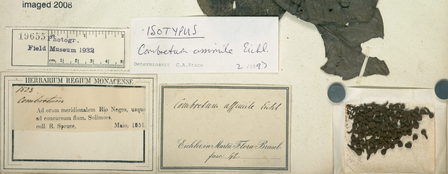 imaged 2008
19655
Photogr.
Field Museum 1932
ISOTYPUS
Combretum assimile Eichl.
Determinavit C.A.Stace
HERBARIUM REGIUM MONACENSE.
Combretum
Ad oram meridionalem Rio Negro, usque
ad concursum flum. Solimoes.
coll. R. Spruce. Maio, 1851.
Combretum affinite Eichl
Eichler in Mart. Flora Brasil.
fasc.